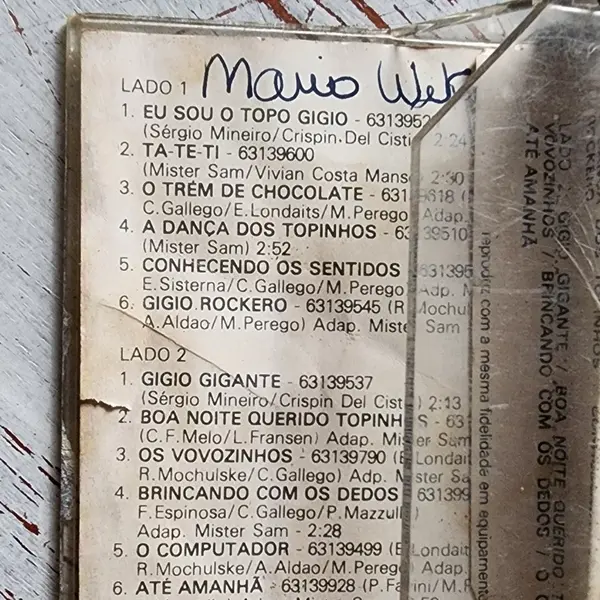 LADO 1 Mario
1. EU SOU O TOPO GIGIO - 6313952
(Sérgio Mineiro/Crispin.Del Cisti 2:24
2. TA-TE-TI - 63139600
(Mister Sam/Vivian Costa Manso 2:30
3. O TREM DE CHOCOLATE - 63139618 (
C.Gallego/E.Londaits/M.Perego Adap.
4. A DANÇA DOS TOPINHOS - 63139510
(Mister Sam) 2:52
5. CONHECENDO OS SENTIDOS 631395
E.Sisterna/C.Gallego/M.Perego Adp. M
6. GIGIO ROCKERO - 63139545 (R Mochul
A.Aldao/M.Perego) Adap. Miste Sam
LADO 2
1. GIGIO GIGANTE - 63139537
(Sérgio Mineiro/Crispin Del Cist ) 2:13
2. BOA NOITE QUERIDO TOPINH S - 63
(C.F.Melo/L.Fransen) Adap. Mister Sam
3. OS VOVOZINHOS - 63139790 (E Londai
R.Mochulske/C.Gallego) Adp. Mister Sa
4. BRINCANDO COM OS DEDOS 631399
F.Espinosa/C.Gallego/P.Mazzull
Adap. Mister Sam - 2:28
5. O COMPUTADOR - 63139499 (E Londait
R.Mochulske/A.Aldao/M.Perego Adap.
6. ATÉ AMANHÃ - 63139928 (P.Farini/M.F
reproduz com a mesma fidelidade em equipamento
LADO 2 GIGIO GIGANTE / BOA NOITE QUERIDO T
VOVOZINHOS / BRINCANDO COM OS DEDOS / O C
ATÉ AMANHÃ